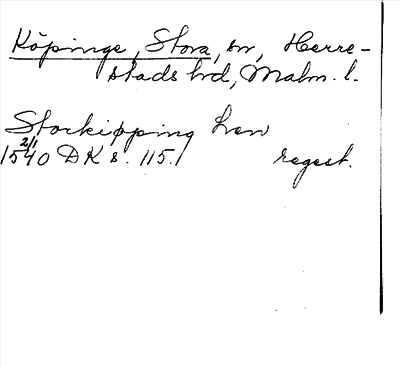 Köpinge, Stora, sn, Herre-
stads hd, Malm. l.
Storkiøpping hen
2/1
1540 DK s. 115. regest.